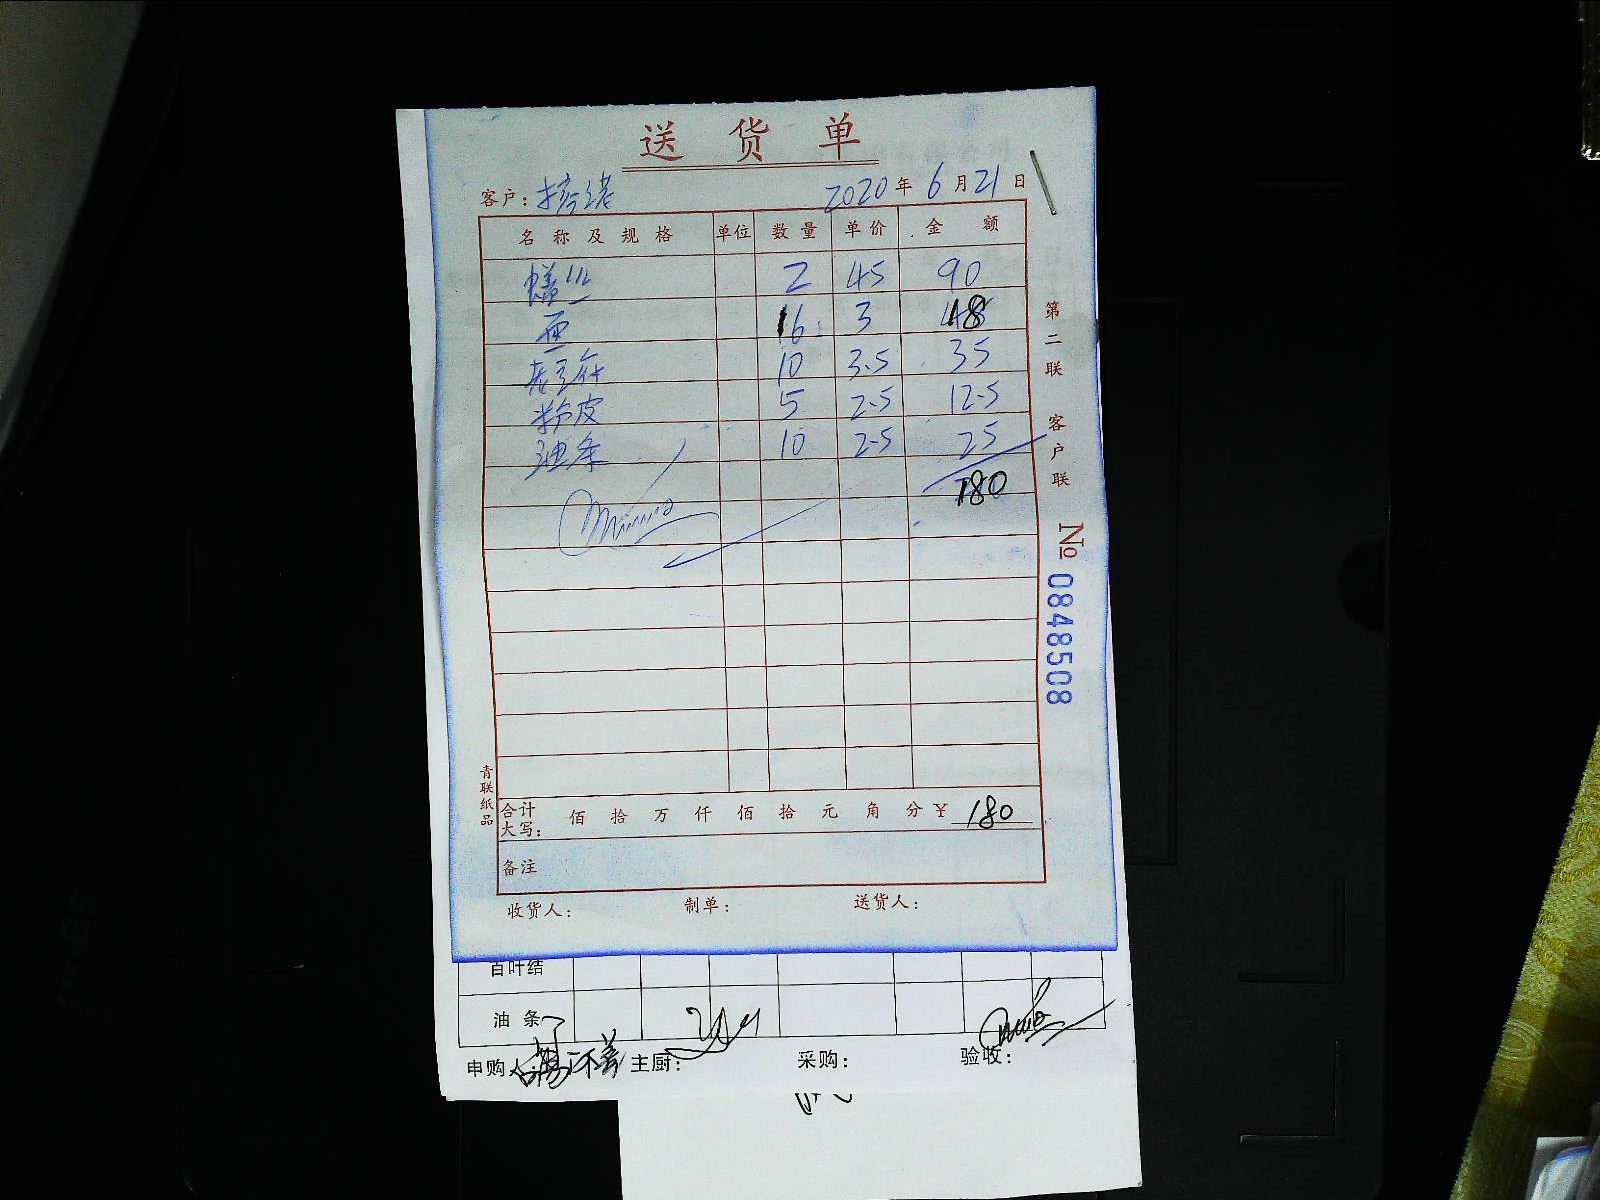 送货单
客户: 2020年6月21日
名称及规格 单位 数量 单价 金额
丝 2 45 90
3 18
老豆 10 3.5 35
皮 5 2.5 12.5
油条 10 2.5 25
180
合计大写: 佰 拾 万 仟 佰 拾 元 角 分 ¥ 180
备注
收货人: 制单: 送货人:
第二联 客户联
№ 0848508
青联纸品
百叶结
油条
申购人: 主厨: 采购: 验收: